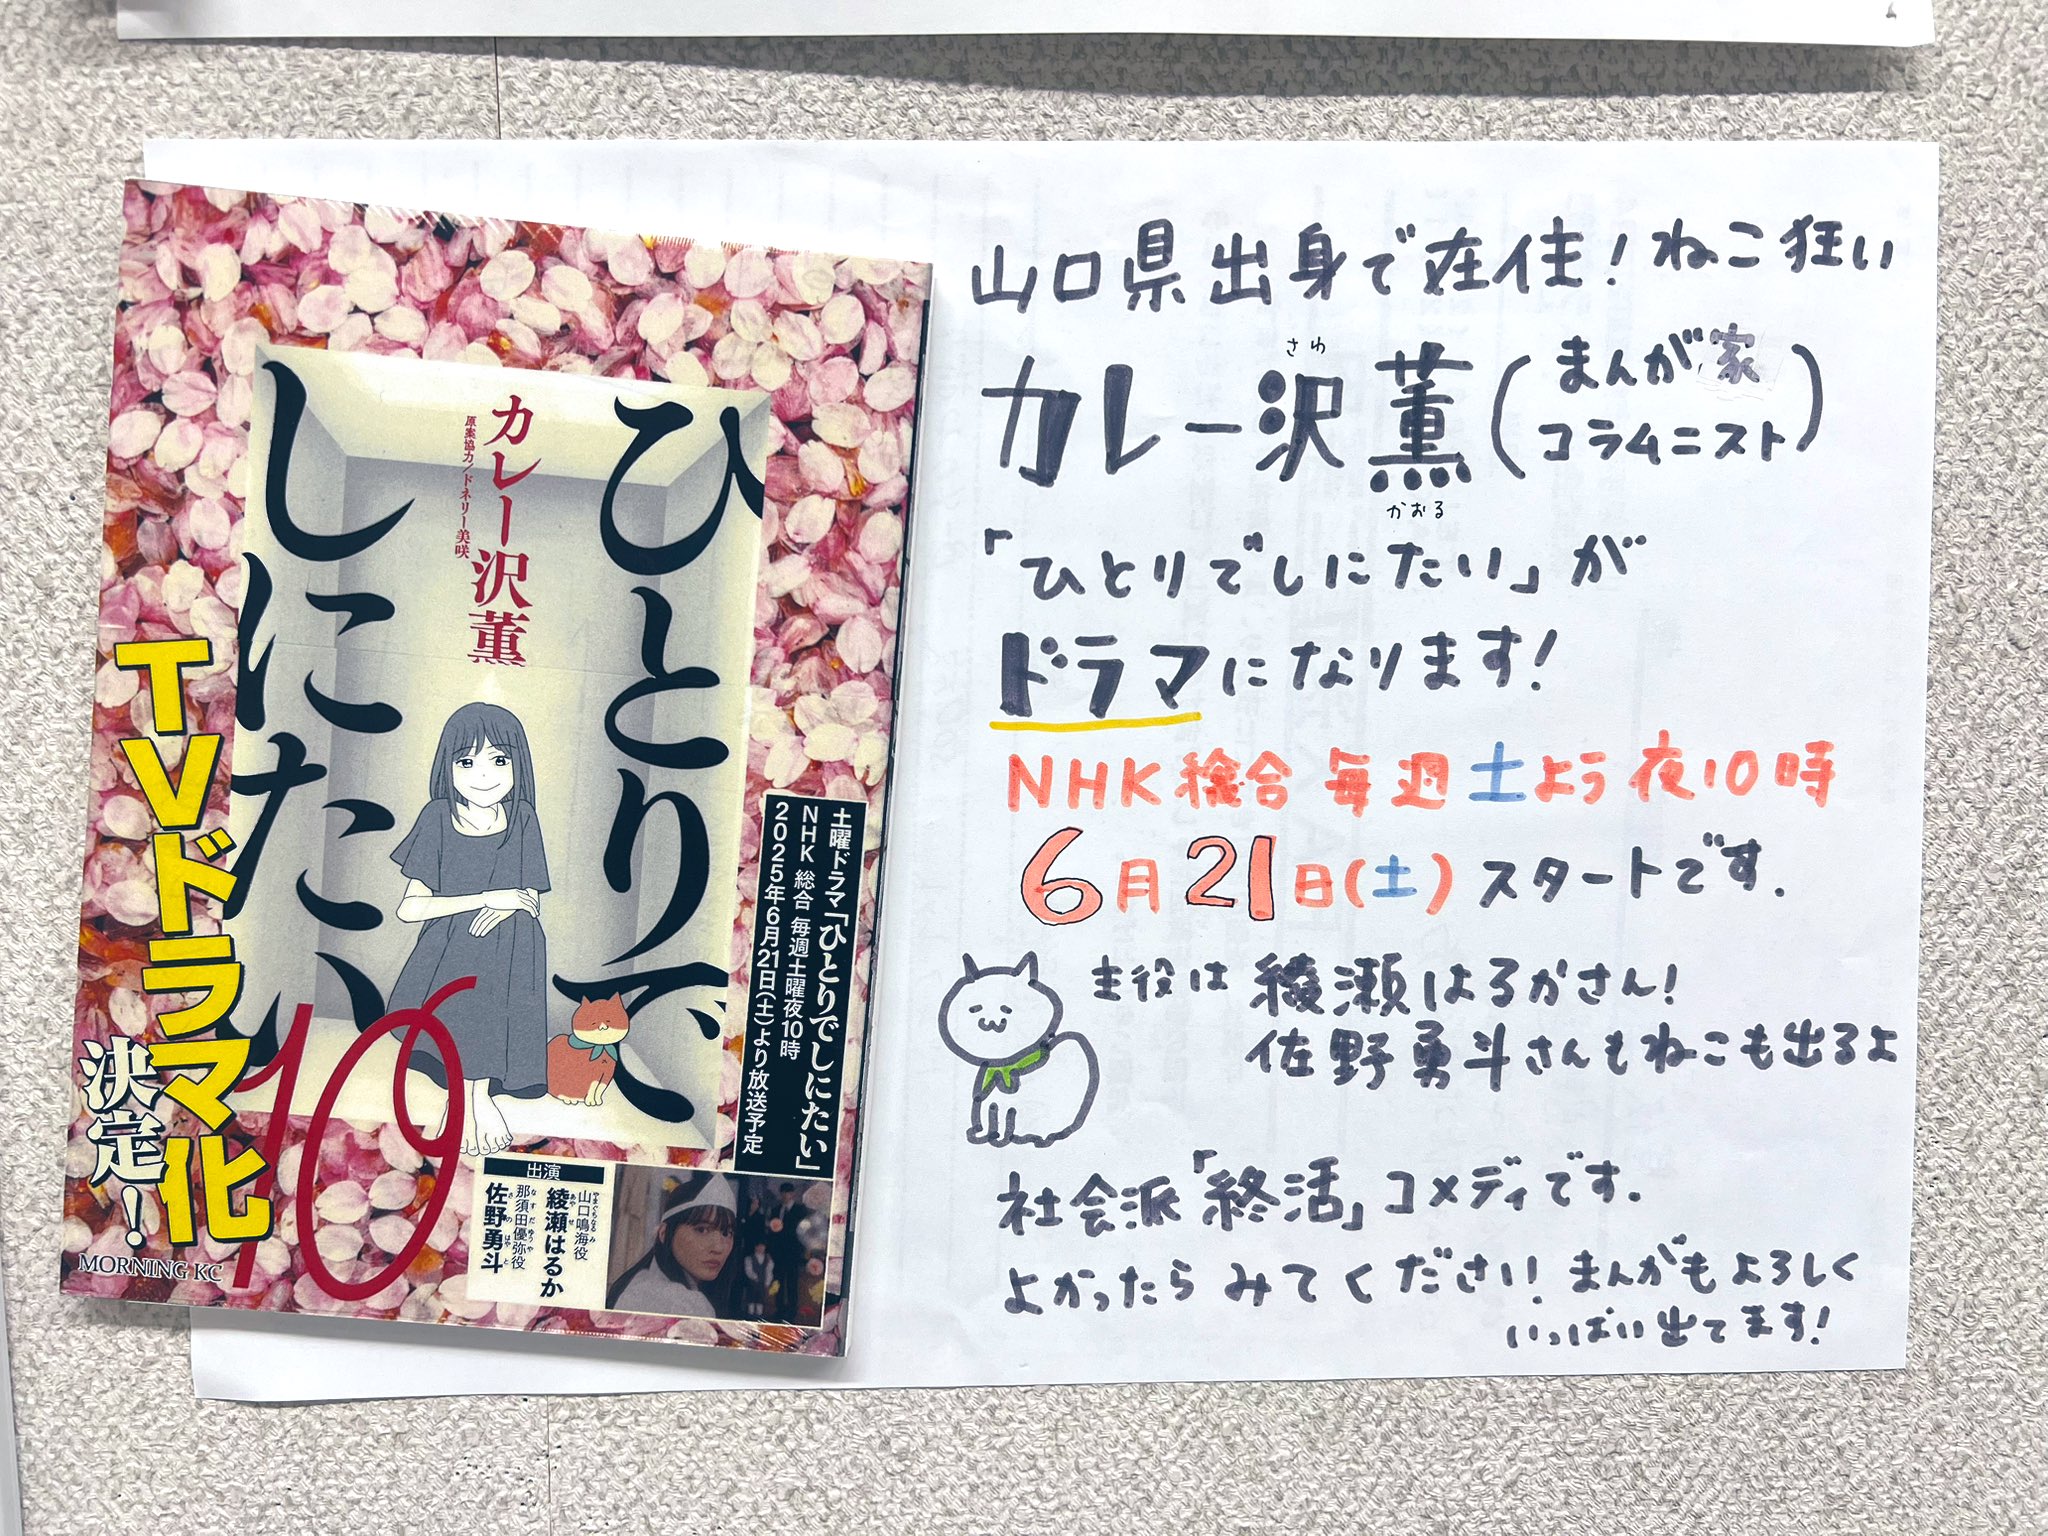 ひとりで
しにたい
カレー沢薫
原案協力/ドネリー美咲
TVドラマ化
決定!
10
土曜ドラマ「ひとりでしにたい」
NHK 総合 毎週土曜夜10時
2025年6月21日(土)より放送予定
出演
山口鳴海役
やまぐちなるみ
綾瀬はるか
あやせ
那須田優弥役
なすだゆうや
佐野勇斗
さのはやと
MORNING KC
山口県出身で在住!ねこ狂い
カレー沢薫(まんが家
コラムニスト)
さわ
かおる
「ひとりでしにたい」が
ドラマになります!
NHK総合 毎週土よう夜10時
6月21日(土)スタートです.
主役は 綾瀬はるかさん!
佐野勇斗さんもねこも出るよ
社会派「終活」コメディです.
よかったら みてください! まんがもよろしく
いっぱい出てます!